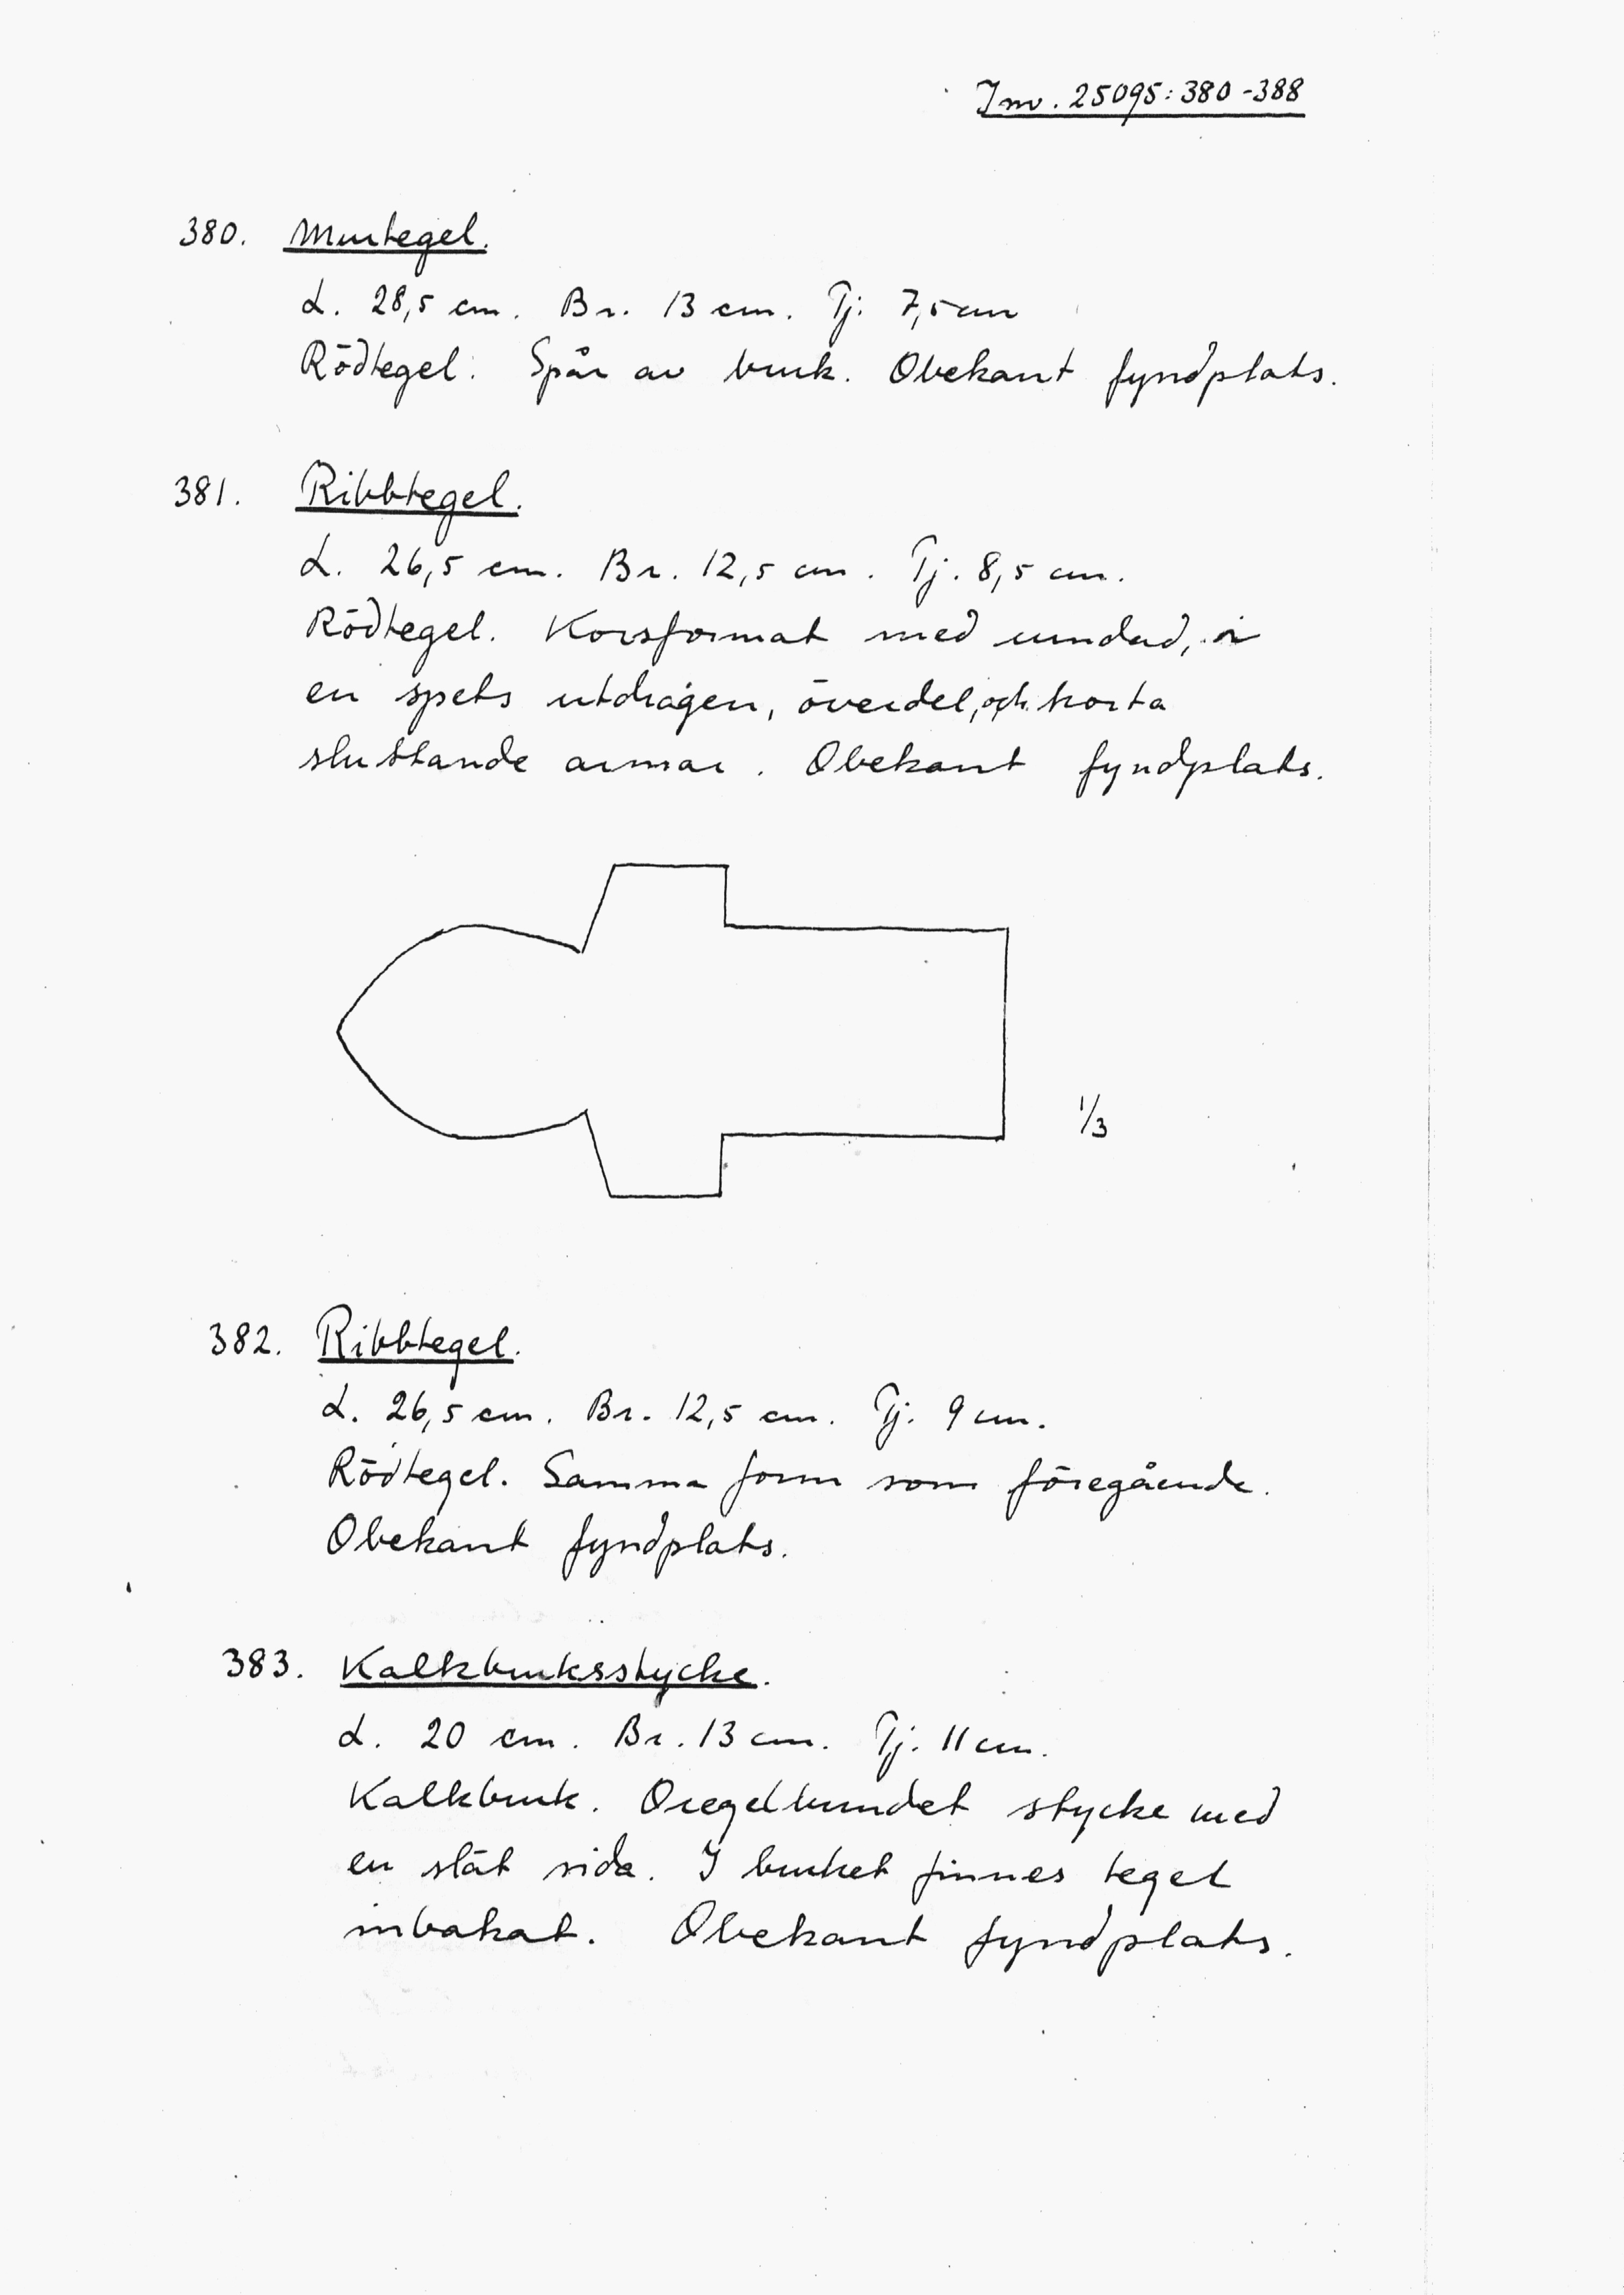 Inv. 25095:380-388
380. Murtegel.
L. 28,5 cm. Br. 13 cm. Tj. 7,5 cm
Rödtegel. Spår av bruk. Obekant fyndplats.
381. Ribbtegel.
L. 26,5 cm. Br. 12,5 cm. Tj. 8,5 cm.
Rödtegel. Korsformat med rundad, i
en spets utdragen, överdel, och korta
sluttande armar. Obekant fyndplats.
1/3
382. Ribbtegel.
L. 26,5 cm. Br. 12,5 cm. Tj. 9 cm.
Rödtegel. Samma form som föregående.
Obekant fyndplats.
383. Kalkbruksstycke.
L. 20 cm. Br. 13 cm. Tj. 11 cm.
Kalkbruk. Oregelbundet stycke med
en slät sida. I bruket finnes tegel
inbakat. Obekant fyndplats.